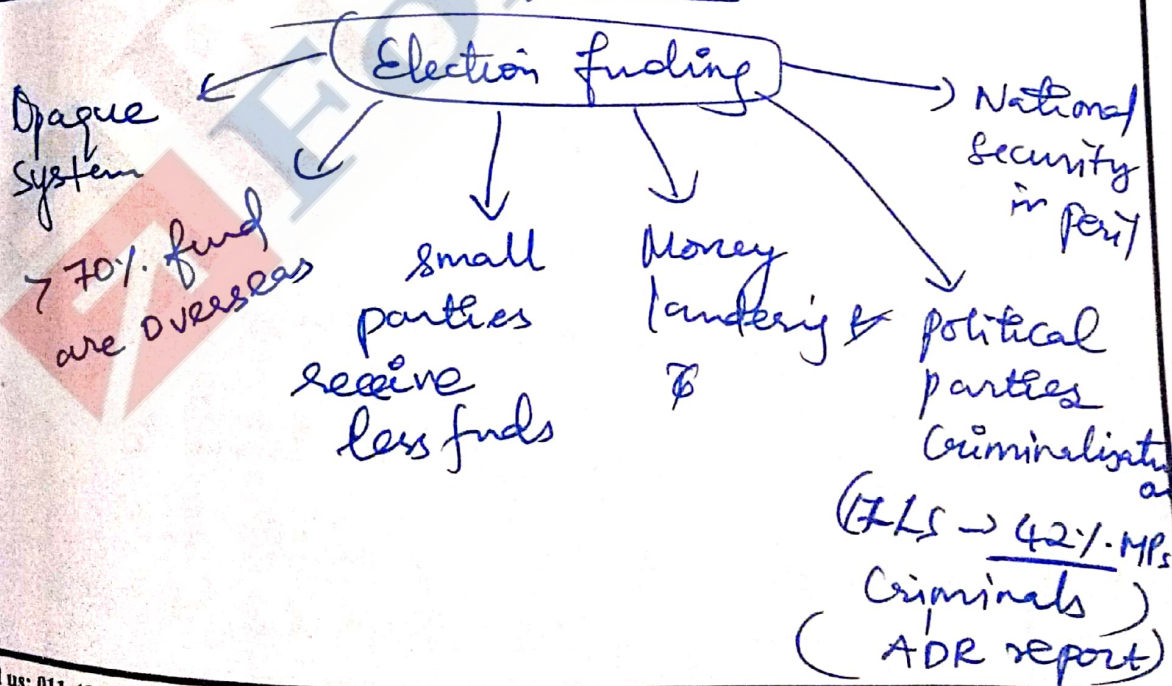 Election funding
Opaque
system
> 70%. fund
are overseas
small
parties
receive
less funds
Money
landering
political
parties
Criminalisation
(17LS → 42%. MPs
Criminals )
( ADR report)
→ National
security
in peril
us: 011